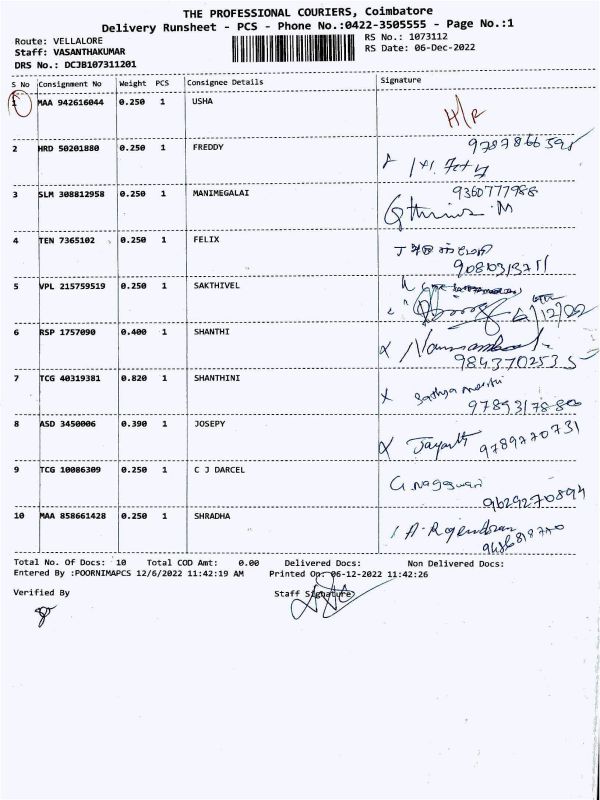 THE PROFESSIONAL COURIERS, Coimbatore
Delivery Runsheet - PCS - Phone No.:0422-3505555 - Page No.:1
Route: VELLALORE
RS No.: 1073112
Staff: VASANTHAKUMAR
RS Date: 06-Dec-2022
DRS No.: DCJB107311201
S No Consignment No Weight PCS Consignee Details Signature
1 MAA 942616044 0.250 1 USHA
H/R
2 HRD 50201880 0.250 1 FREDDY
3 SLM 308812958 0.250 1 MANIMEGALAI
9360777988
4 TEN 7365102 0.250 1 FELIX
5 VPL 215759519 0.250 1 SAKTHIVEL
6/12/22
6 RSP 1757090 0.400 1 SHANTHI
9843702535
7 TCG 40319381 0.820 1 SHANTHINI
8 ASD 3450006 0.390 1 JOSEPY
Jayanth 9789220731
9 TCG 10086309 0.250 1 C J DARCEL
9629270894
10 MAA 858661428 0.250 1 SHRADHA
A. Rajendran
Total No. Of Docs: 10 Total COD Amt: 0.00 Delivered Docs: Non Delivered Docs:
Entered By :POORNIMAPCS 12/6/2022 11:42:19 AM Printed On: 06-12-2022 11:42:26
Verified By Staff Signature